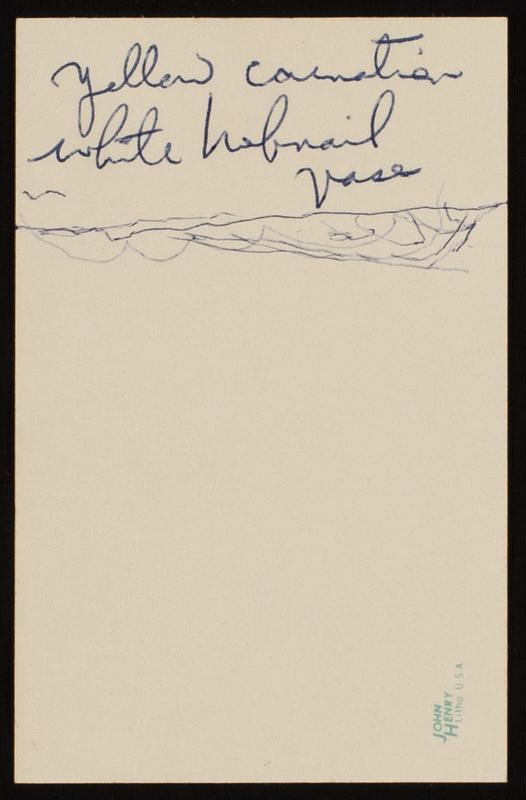 Yellow carnation
white hobnail
vase
JOHN
HENRY
Litho U.S.A